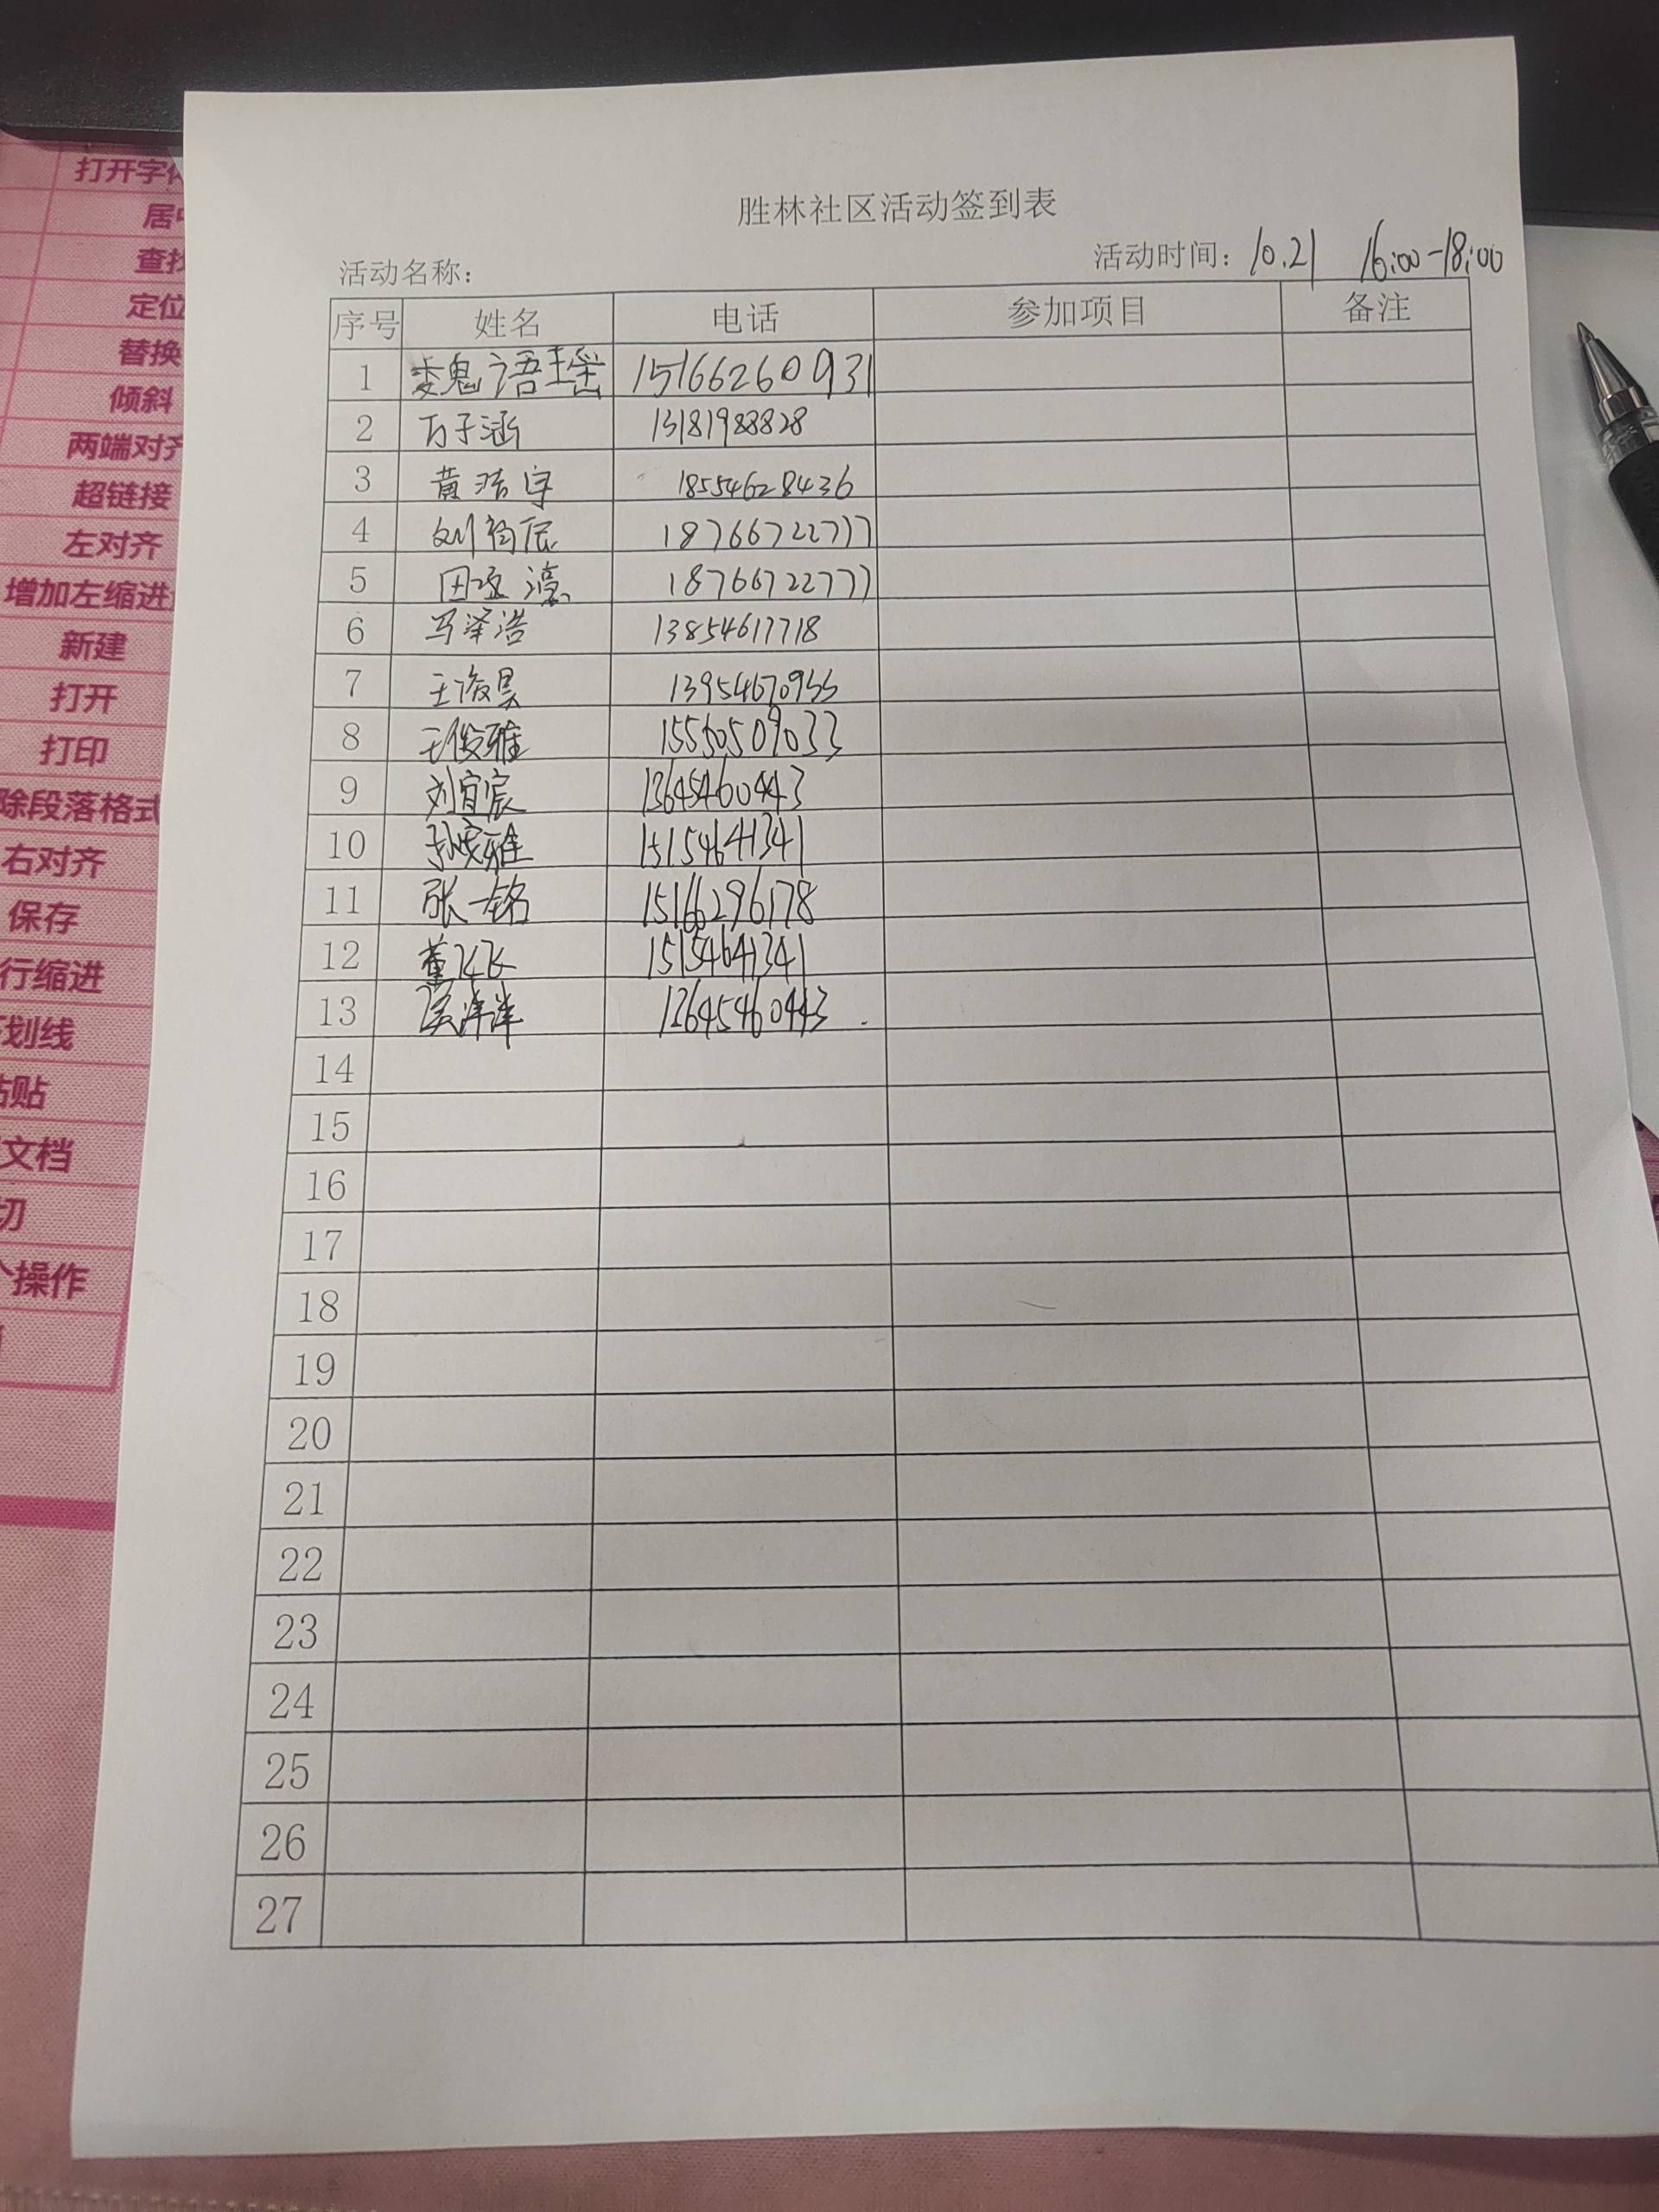 打开字体
居中
查找
定位
替换
倾斜
两端对齐
超链接
左对齐
增加左缩进
新建
打开
打印
除段落格式
右对齐
保存
行缩进
划线
粘贴
文档
切
个操作
胜林社区活动签到表
活动名称： 活动时间：10.21 16:00-18:00
序号 姓名 电话 参加项目 备注
1 魏语瑶 15166260931
2 万子涵 13181988828
3 黄浩宇 18554628436
4 刘 18766722777
5 田 18766722777
6 马泽浩 13854617718
7 王俊昊 13954670955
8 王俊雅 15550509033
9 刘宜宸 13645460443
10 孙雯雅 15154641341
11 张一铭 15166296178
12 董飞飞 15154641341
13 吴洋洋 13645460443
14
15
16
17
18
19
20
21
22
23
24
25
26
27